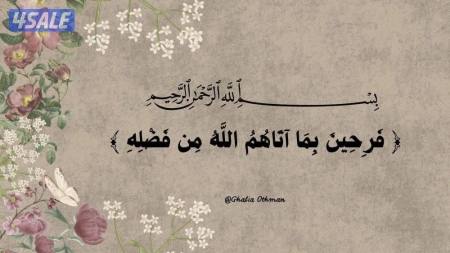 4SALE
بِسْمِ اللَّهِ الرَّحْمَٰنِ الرَّحِيمِ
﴿ فَرِحِينَ بِمَا آتَاهُمُ اللَّهُ مِن فَضْلِهِ ﴾
@Ghalia Othman